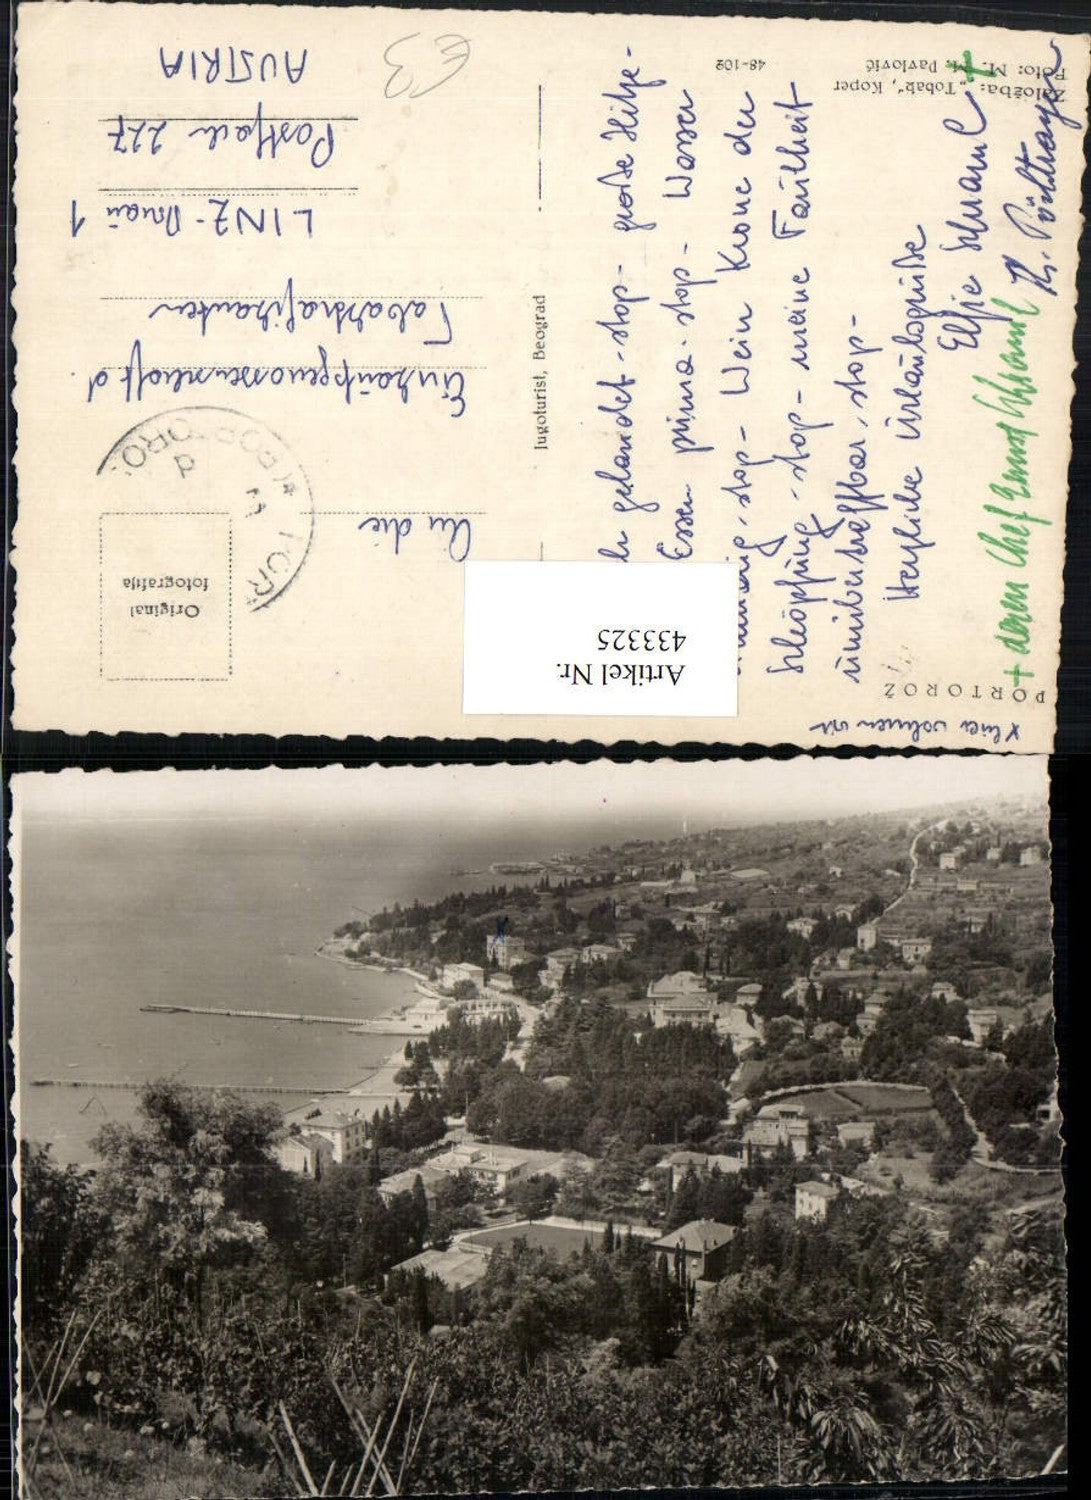 PORTOROŽ
x hier wohnen wir
gelandet - stop - große Hitze -
Essen prima - stop - Wasser
- stop - Wein Krone der
Schöpfung - stop - meine Faulheit
unübertreffbar, stop -
Herzliche Urlaubsgrüße
Elfje Schraml +
+ deren Chef Ernst Schraml
Založba: „Tobak", Koper
Foto: M. M. Pavlović
48-102
Jugoturist, Beograd
Original
fotografija
PORTOROŽ
An die
Einkaufsgenossenschaft d.
Tabaktrafikanten
LINZ-Donau 1
Postfach 227
AUSTRIA
€3
Artikel Nr.
433325